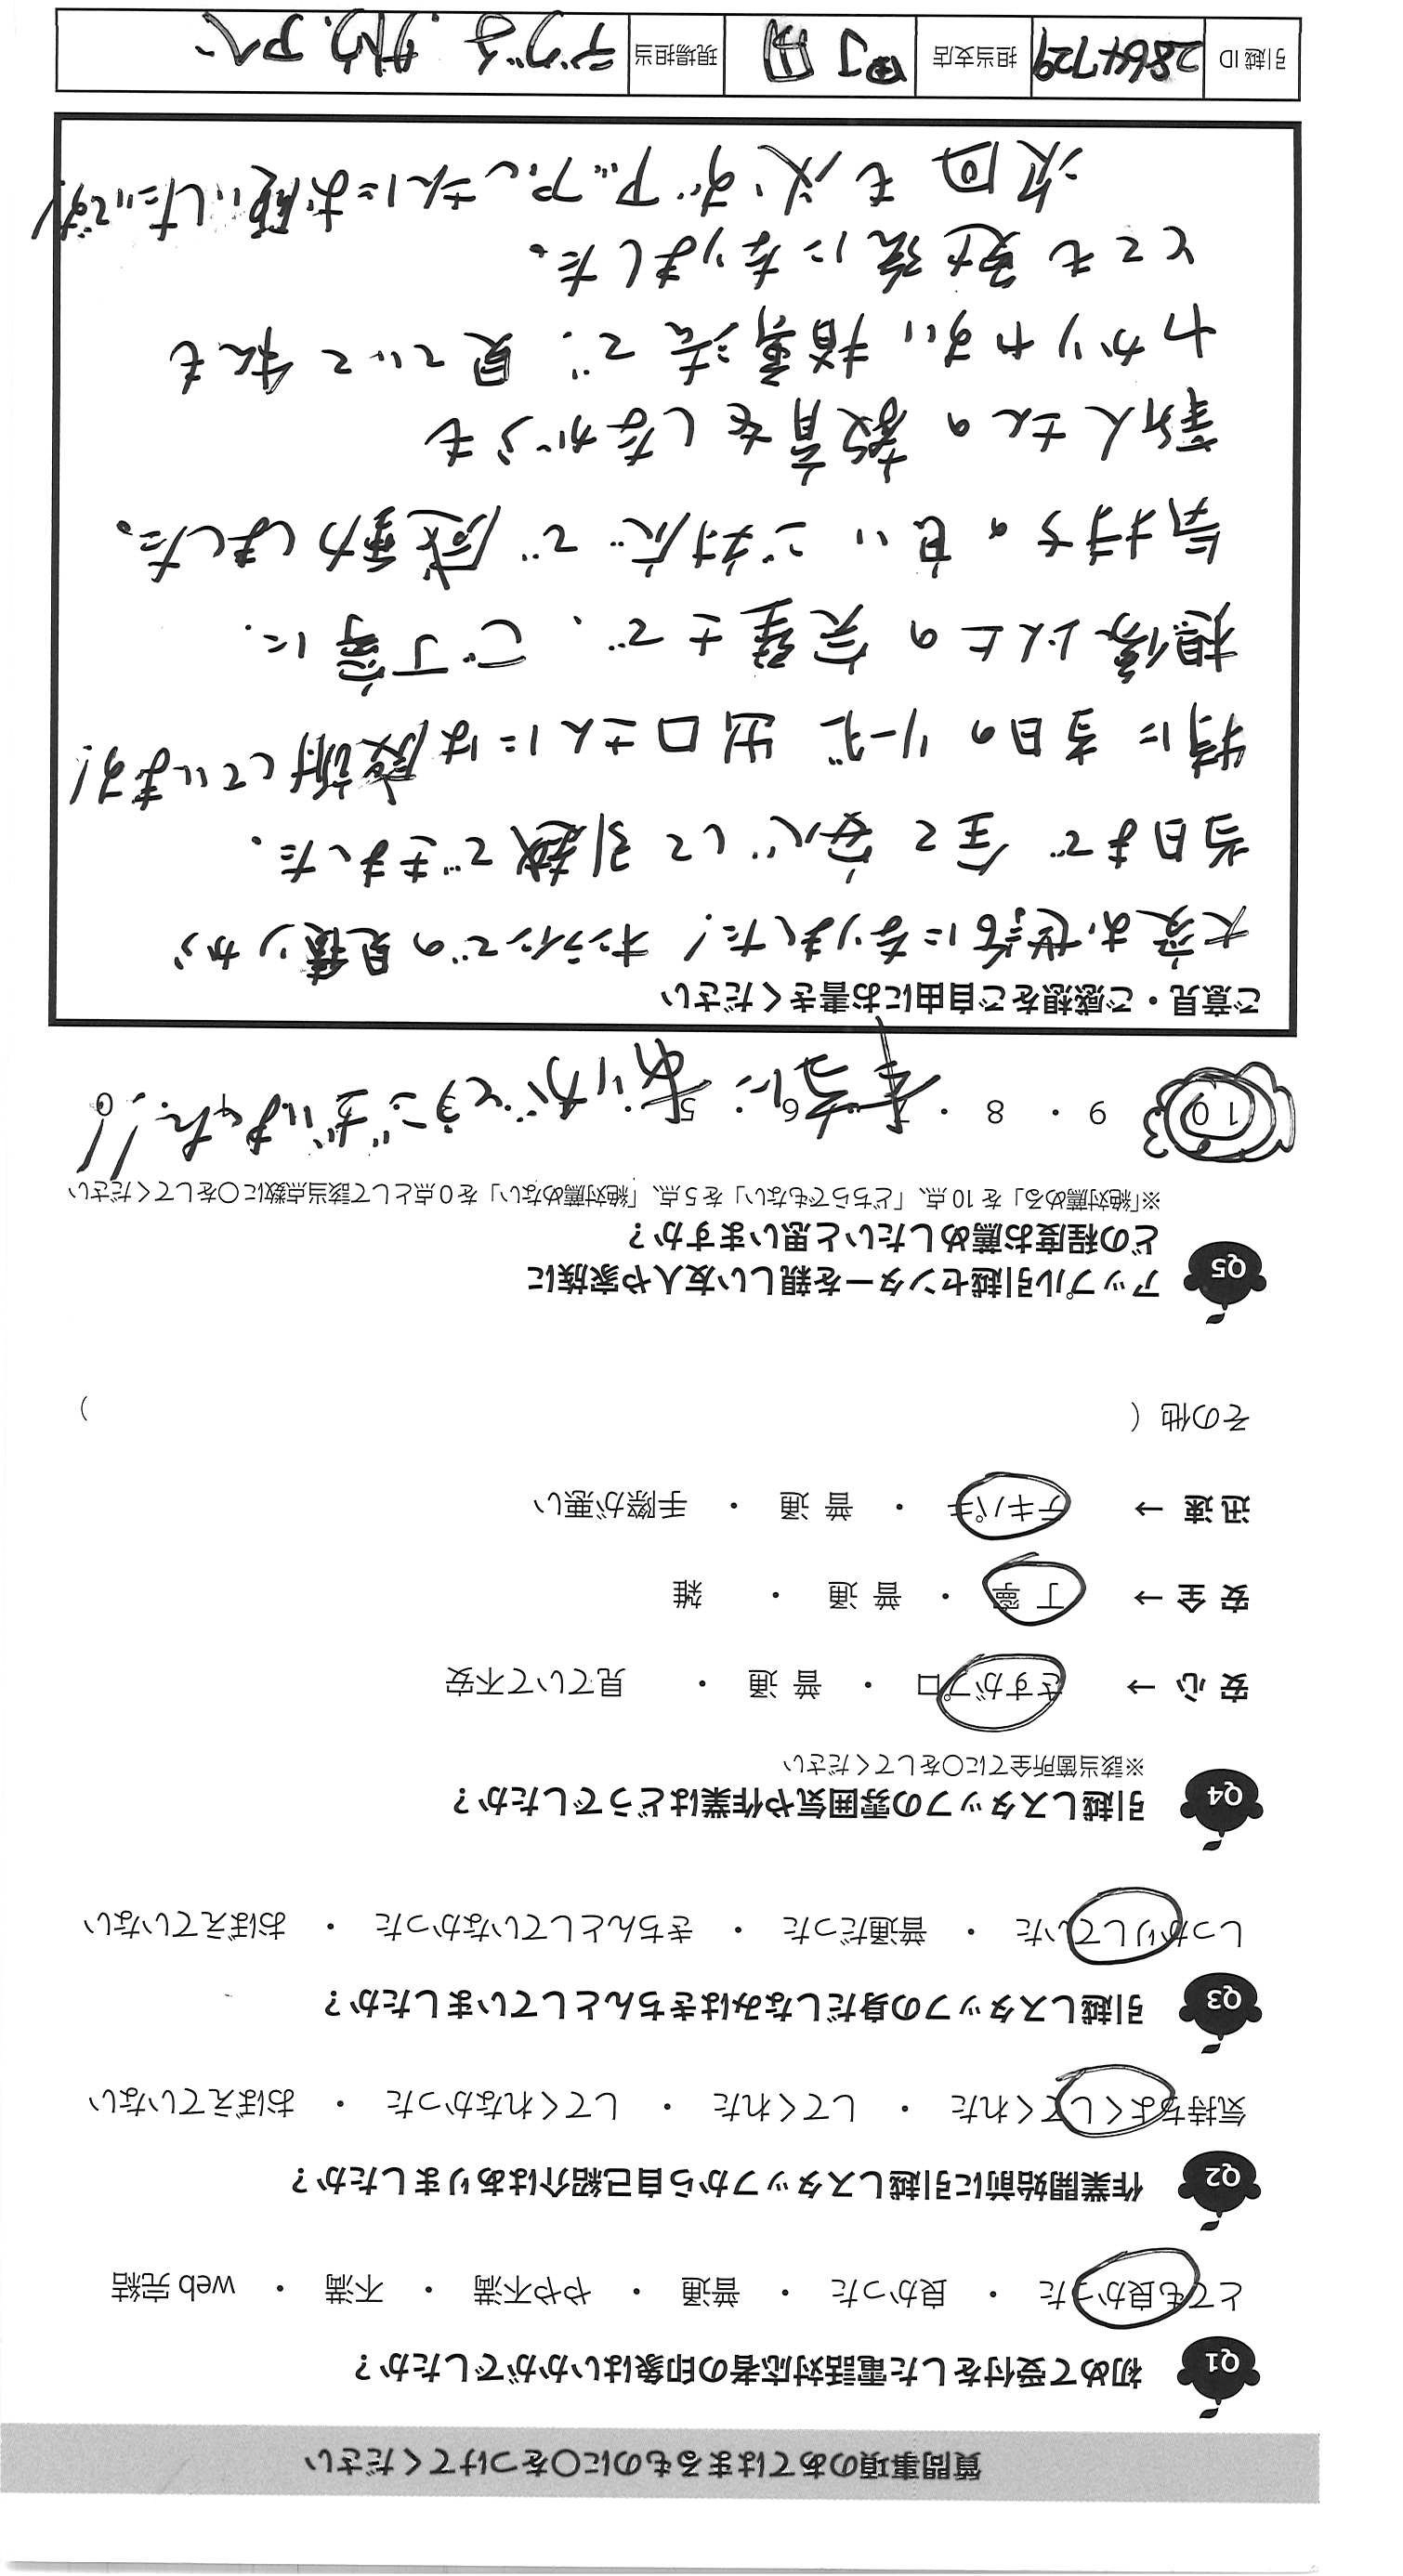 質問事項のあてはまるものに○をつけてください
Q1 初めて受付をした電話対応者の印象はいかがでしたか？
とても良かった ・ 良かった ・ 普通 ・ やや不満 ・ 不満 ・ web 完結
Q2 作業開始前に引越しスタッフから自己紹介はありましたか？
気持ちよくしてくれた ・ してくれた ・ してくれなかった ・ おぼえていない
Q3 引越しスタッフの身だしなみはきちんとしていましたか？
しっかりしていた ・ 普通だった ・ きちんとしていなかった ・ おぼえていない
Q4 引越しスタッフの雰囲気や作業はどうでしたか？
※該当箇所全てに○をしてください
安 心 → さすがプロ ・ 普 通 ・ 見ていて不安
安 全 → 丁 寧 ・ 普 通 ・ 雑
迅 速 → テキパキ ・ 普 通 ・ 手際が悪い
その他（ ）
Q5 アップル引越センターを親しい友人や家族に
どの程度お薦めしたいと思いますか？
※「絶対薦める」を 10 点、「どちらでもない」を 5 点、「絶対薦めない」を 0 点として該当点数に○をしてください
10 9 ・ 8 ・ 6 ・ 5
本当に ありがとうございました!!
ご意見・ご感想をご自由にお書きください
大変お世話になりました! オンラインでの見積りから
当日まで 全て 安心して 引越できました.
特に 当日の リーダー 出口さんには感謝しています!
想像以上の 完璧さで、ご丁寧に.
気持ちの良い ご対応で 感動しました。
新人さんの 教育をしながらも
わかりやすい 指導法で. 見ていて 私も
とても 勉強になりました。
次回も 必ず アップルさんにお願いしたいです!
引越 ID 2864729 担当支店 町田 現場担当 デグチ. サトウ. アベ